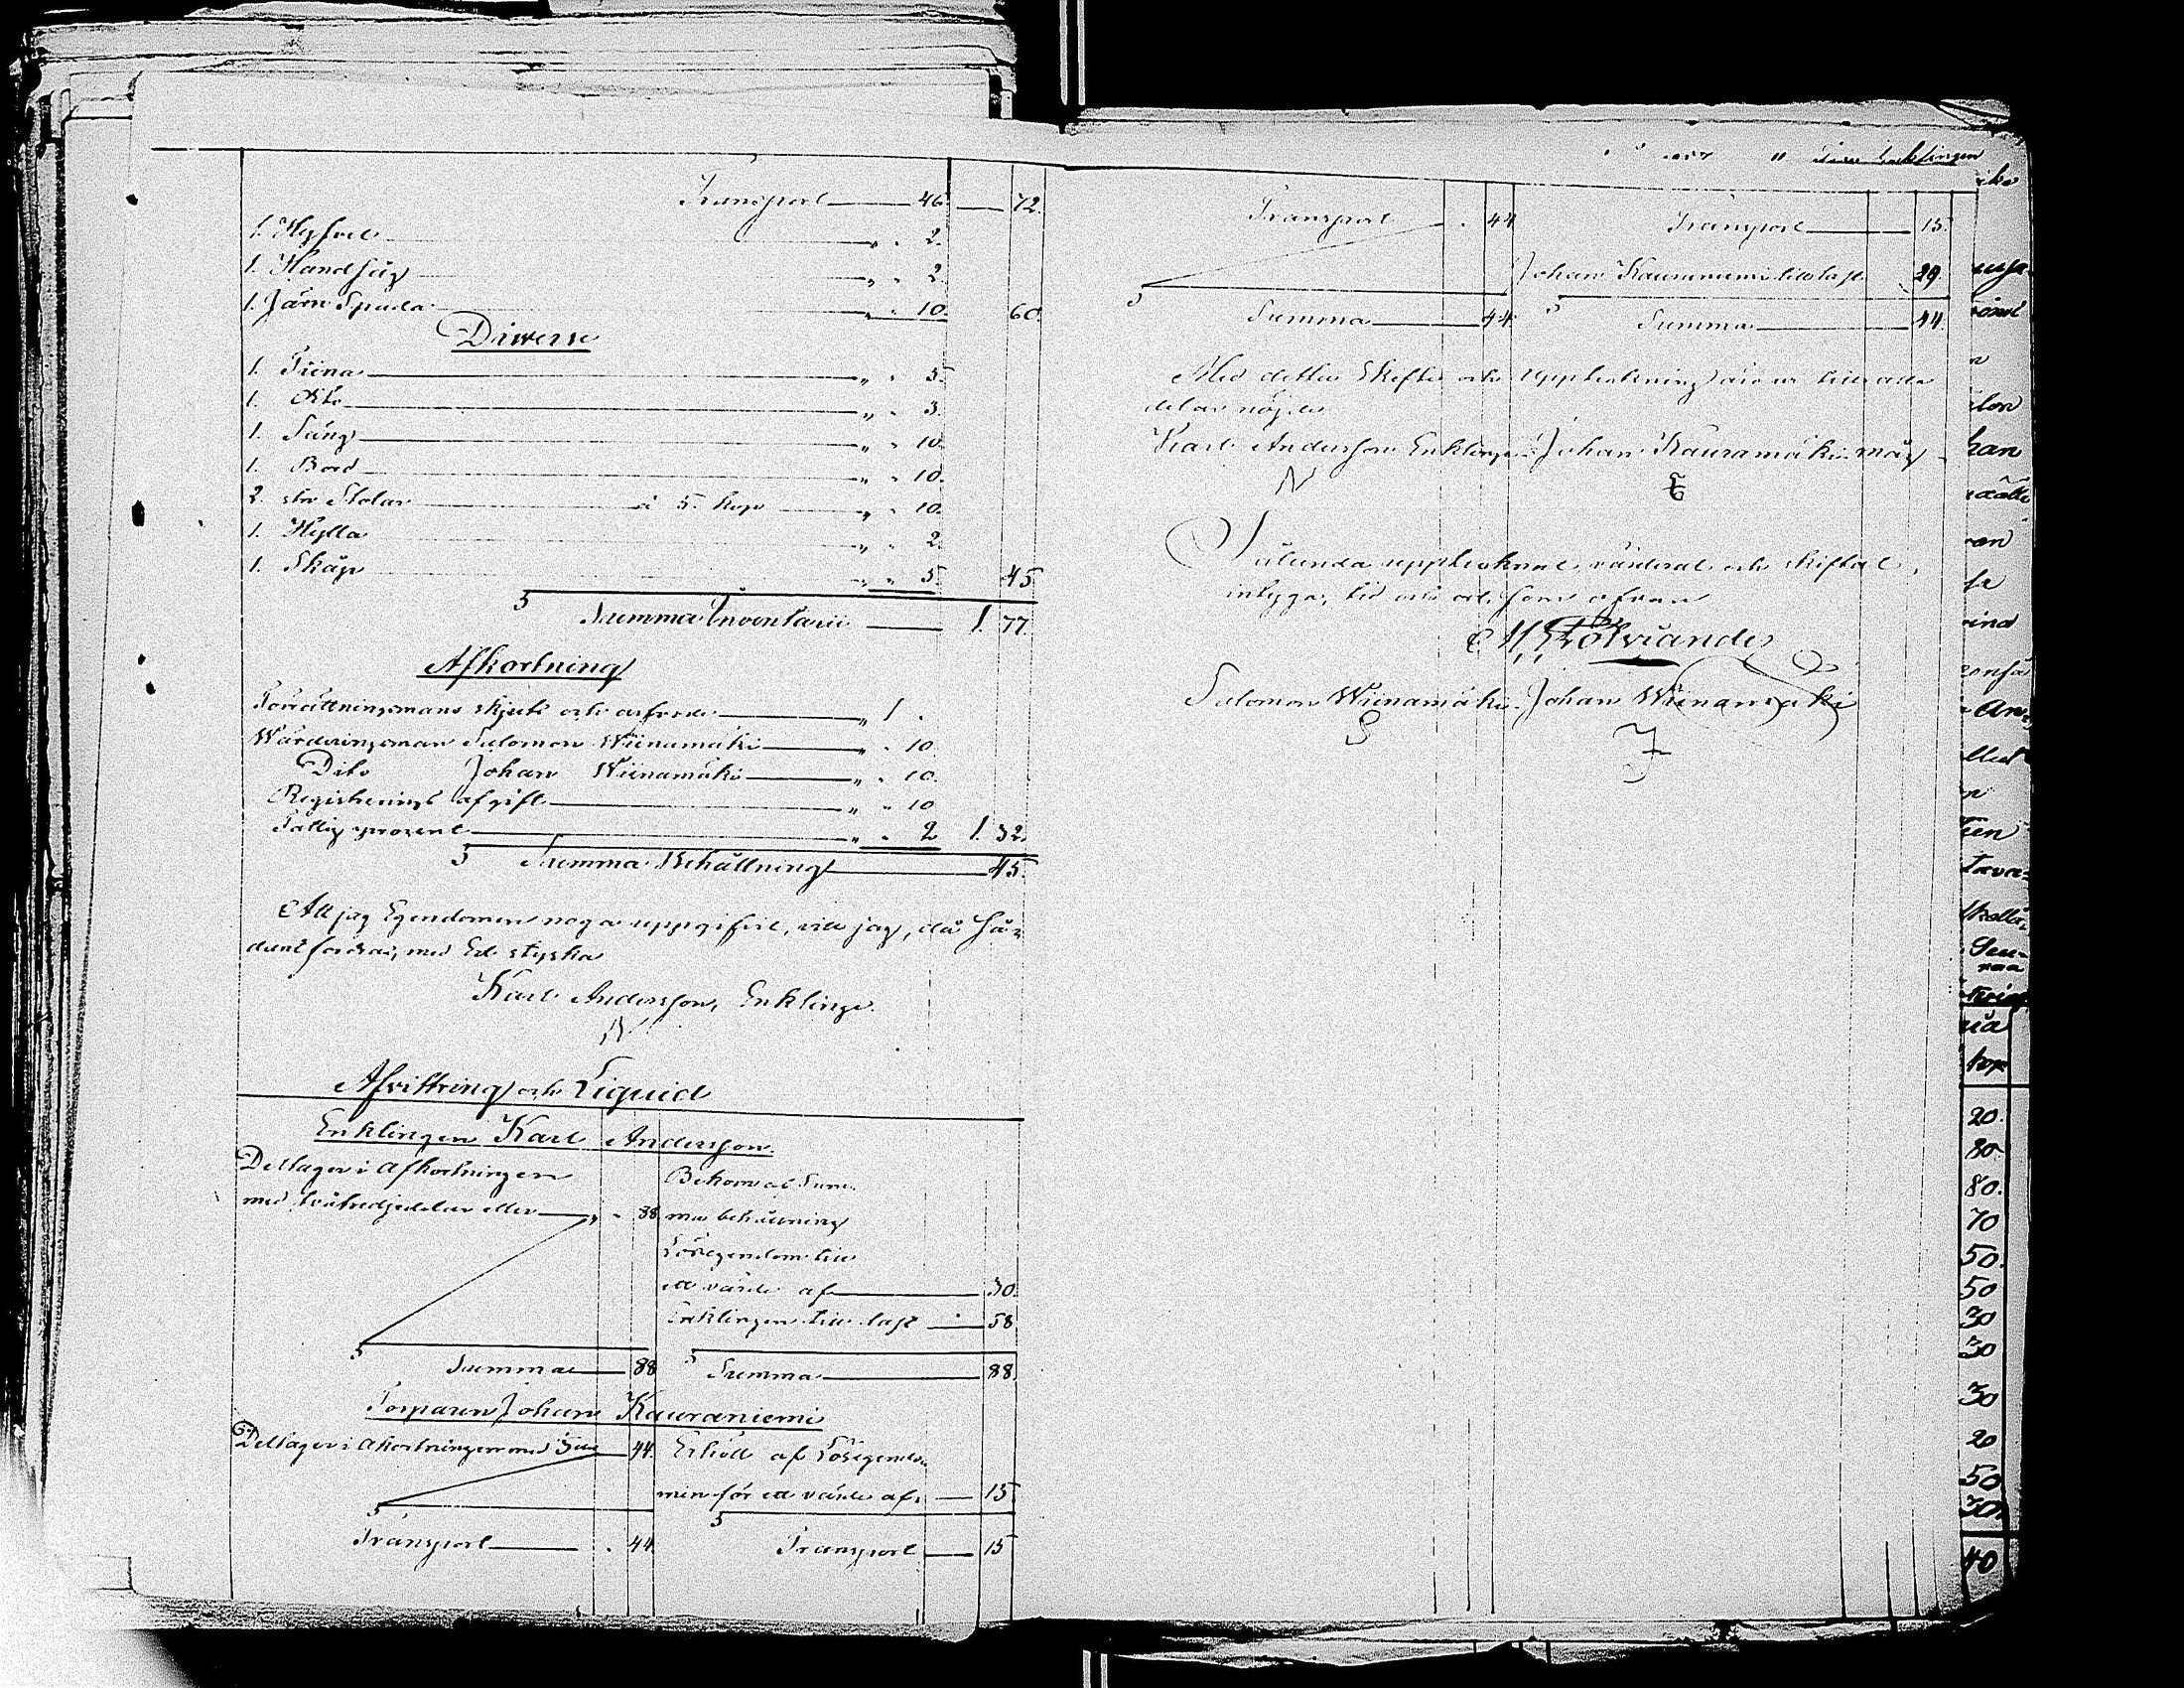 Transport 46. 72.
1. Hyfvel " " 2.
1. Handsåg " " 2.
1. Järn Spada " " 10. 60.
Diverse
1. Tiina " " 5.
1. Dito " " 3.
1. Säng " " 10.
1. Bord " " 10.
2. str Stolar à 5. kop " " 10.
1. Hylla " " 2.
1. Skåp " " 5. 45.
Summa Inventarii 1. 77.
Afkortning
Förrättningsmans skjuts och arfvode " 1 .
Wärderingsman Salomon Wiinamäki " " 10.
Dito Johan Wiinamäki " " 10.
Registrerings afgift " " 10
Fattig procent " " 2 1. 32.
Summa Behållning 45.
Att jag Egendomen noga uppgifvit, vill jag, då så-
dant fordras, med Ed styrka
Karl Andersson, Enkling.
N
Afvittring och Liquid
Enklingen Karl Andersson.
Deltager i afkortningen
med tvåtredjedelar eller " " 88
Bekom af Sum-
ma behållning
Lösegendom till
ett värde af 30.
Enklingen till last 58
Summa 88
Summa 88.
Torparen Johan Kauraniemi
Deltager i akortningen med 44.
Erhöll af Lösegendo-
men för ett värde af 15.
Transport . 44.
Transport 15
Transport . 44
Transport 15.
Johan Kauraniemi till last 29.
Summa 44
Summa 44.
Med detta Skifte och uppteckning äro vi till alla
delar nöjde
Karl Andersson Enkling Johan Kauramäki måg
N
Sålunda upptecknat, värderat och skiftat,
intyga, tid och ort som ofvan
Salomon Wiinamäki. Johan Wiinamäki
S J